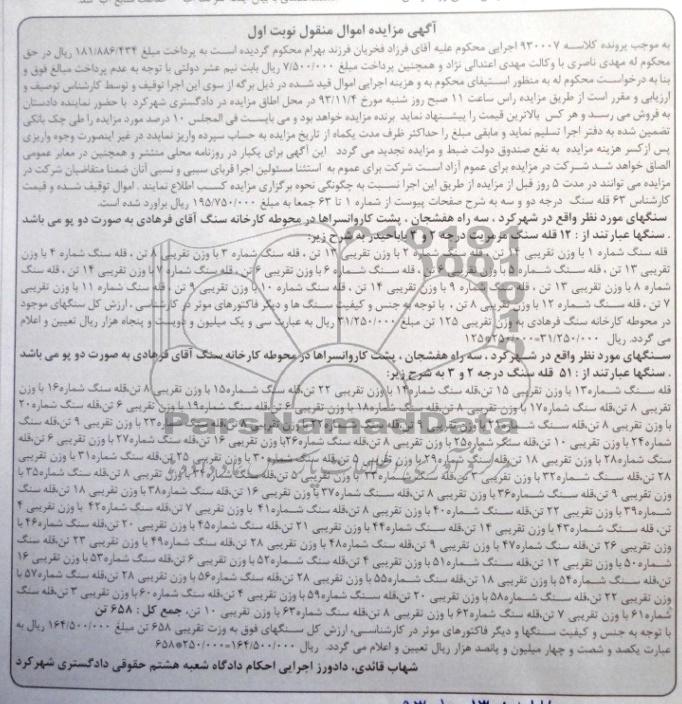 آگهی مزایده اموال منقول نوبت اول
به موجب پرونده کلاسه ۹۳۰۰۰۷ اجرایی محکوم علیه آقای فرزاد فخریان فرزند بهرام محکوم گردیده است به پرداخت مبلغ ۱۸۱/۸۸۶/۴۳۴ ریال در حق
محکوم له مهدی ناصری با وکالت مهدی اعتدالی نژاد و همچنین پرداخت مبلغ ۷/۵۰۰/۰۰۰ ریال بابت نیم عشر دولتی با توجه به عدم پرداخت مبالغ فوق و
بنا به درخواست محکوم له به منظور استیفای محکوم به و هزینه اجرایی اموال قید شده در ذیل برگه از سوی این اجرا توقیف و توسط کارشناس توصیف و
ارزیابی و مقرر است از طریق مزایده راس ساعت ۱۱ صبح روز شنبه مورخ ۹۳/۱۱/۴ در محل اطاق مزایده در دادگستری شهرکرد با حضور نماینده دادستان
به فروش می رسد و هر کس بالاترین قیمت را پیشنهاد نماید برنده مزایده خواهد بود و می بایست فی المجلس ۱۰ درصد مورد مزایده را طی چک بانکی
تضمین شده به دفتر اجرا تسلیم نماید و مابقی مبلغ را حداکثر ظرف مدت یکماه از تاریخ مزایده به حساب سپرده واریز نماید در غیر اینصورت وجوه واریزی
پس از کسر هزینه مزایده به نفع صندوق دولت ضبط و مزایده تجدید می گردد این آگهی برای یکبار در روزنامه محلی منتشر و همچنین در معابر عمومی
الصاق خواهد شد شرکت در مزایده برای عموم آزاد است شرکت برای عموم به استثنا مسئولین اجرا قربای سببی و نسبی آنان ضمنا متقاضیان شرکت در
مزایده می توانند در مدت ۵ روز قبل از مزایده از طریق این اجرا نسبت به چگونگی نحوه برگزاری مزایده کسب اطلاع نمایند . اموال توقیف شده و قیمت
کارشناس ۶۳ قله سنگ درجه دو و سه به شرح صفحات پیوست از شماره ۱ تا ۶۳ جمعا به مبلغ ۱۹۵/۷۵۰/۰۰۰ ریال برآورد شده است.
سنگهای مورد نظر واقع در شهرکرد ، سه راه هفشجان ، پشت کاروانسراها در محوطه کارخانه سنگ آقای فرهادی به صورت دو پو می باشد
. سنگها عبارتند از : ۱۲ قله سنگ مرمریت درجه ۲ و ۳ باباحیدر به شرح زیر:
قله سنگ شماره ۱ با وزن تقریبی ۱۲ تن ، قله سنگ شماره ۲ با وزن تقریبی ۱۳ تن ، قله سنگ شماره ۳ با وزن تقریبی ۸ تن ، قله سنگ شماره ۴ با وزن
تقریبی ۱۳ تن ، قله سنگ شماره ۵ با وزن تقریبی ۶ تن ، قله سنگ شماره ۶ با وزن تقریبی ۶ تن ، قله سنگ شماره ۷ با وزن تقریبی ۱۴ تن ، قله سنگ
شماره ۸ با وزن تقریبی ۱۳ تن ، قله سنگ شماره ۹ با وزن تقریبی ۱۴ تن ، قله سنگ شماره ۱۰ با وزن تقریبی ۹ تن ، قله سنگ شماره ۱۱ با وزن تقریبی
۷ تن ، قله سنگ شماره ۱۲ با وزن تقریبی ۸ تن ، با توجه به جنس و کیفیت سنگ ها و دیگر فاکتورهای موثر در کارشناسی ، ارزش کل سنگهای موجود
در محوطه کارخانه سنگ فرهادی به وزن تقریبی ۱۲۵ تن مبلغ ۳۱/۲۵۰/۰۰۰ ریال به عبارت سی و یک میلیون و دویست و پنجاه هزار ریال تعیین و اعلام
می گردد. ریال ۳۱/۲۵۰/۰۰۰=۲۵۰/۰۰۰*۱۲۵
سنگهای مورد نظر واقع در شهرکرد ، سه راه هفشجان ، پشت کاروانسراها در محوطه کارخانه سنگ آقای فرهادی به صورت دو پو می باشد
. سنگها عبارتند از : ۵۱ قله سنگ درجه ۲ و ۳ به شرح زیر:
قله سنگ شماره۱۳ با وزن تقریبی ۱۵ تن،قله سنگ شماره۱۴ با وزن تقریبی ۲۲ تن،قله سنگ شماره۱۵ با وزن تقریبی ۸ تن،قله سنگ شماره۱۶ با وزن
تقریبی ۸ تن،قله سنگ شماره۱۷ با وزن تقریبی ۸ تن،قله سنگ شماره۱۸ با وزن تقریبی ۶ تن،قله سنگ شماره۱۹ با وزن تقریبی ۶ تن،قله سنگ شماره۲۰
با وزن تقریبی ۸ تن،قله سنگ با وزن تقریبی ۲۳ با وزن تقریبی ۹ تن،قله سنگ
شماره۲۴ با وزن تقریبی ۱۰ تن،قله سنگ شماره۲۵ با وزن تقریبی ۸ تن،قله سنگ شماره۲۶ با وزن تقریبی ۱۶ تن،قله سنگ شماره۲۷ با وزن تقریبی ۶ تن،قله
سنگ شماره۲۸ با وزن تقریبی ۱۸ تن،قله سنگ شماره۲۹ با وزن تقریبی ۵ تن،قله سنگ شماره۳۰ با وزن تقریبی ۲۵ تن،قله سنگ شماره۳۱ با وزن تقریبی
۲۸ تن،قله سنگ شماره۳۲ با وزن تقریبی ۳ تن،قله سنگ شماره۳۳ با وزن تقریبی ۵ تن،قله سنگ شماره۳۴ با وزن تقریبی ۸ تن،قله سنگ شماره۳۵ با
وزن تقریبی ۹ تن،قله سنگ شماره۳۶ با وزن تقریبی ۸ تن،قله سنگ شماره۳۷ با وزن تقریبی ۱۶ تن،قله سنگ شماره۳۸ با وزن تقریبی ۱۸ تن،قله سنگ
شماره۳۹ با وزن تقریبی ۲۲ تن،قله سنگ شماره۴۰ با وزن تقریبی ۸ تن،قله سنگ شماره۴۱ با وزن تقریبی ۷ تن،قله سنگ شماره۴۲ با وزن تقریبی ۴
تن، قله سنگ شماره۴۳ با وزن تقریبی ۱۴ تن،قله سنگ شماره۴۴ با وزن تقریبی ۲۱ تن،قله سنگ شماره۴۵ با وزن تقریبی ۲۰ تن،قله سنگ شماره۴۶ با
وزن تقریبی ۲۶ تن،قله سنگ شماره۴۷ با وزن تقریبی ۹ تن،قله سنگ شماره۴۸ با وزن تقریبی ۲۸ تن،قله سنگ شماره۴۹ با وزن تقریبی ۲۳ تن،قله سنگ
شماره۵۰ با وزن تقریبی ۱۲ تن،قله سنگ شماره۵۱ با وزن تقریبی ۴ تن،قله سنگ شماره۵۲ با وزن تقریبی ۶ تن،قله سنگ شماره۵۳ با وزن تقریبی ۱۶
تن،قله سنگ شماره۵۴ با وزن تقریبی ۱۸ تن،قله سنگ شماره۵۵ با وزن تقریبی ۲۸ تن،قله سنگ شماره۵۶ با وزن تقریبی ۲۸ تن،قله سنگ شماره۵۷ با
وزن تقریبی ۲۲ تن،قله سنگ شماره۵۸ با وزن تقریبی ۲۰ تن،قله سنگ شماره۵۹ با وزن تقریبی ۴ تن،قله سنگ شماره۶۰ با وزن تقریبی ۳ تن،قله سنگ
شماره۶۱ با وزن تقریبی ۷ تن،قله سنگ شماره۶۲ با وزن تقریبی ۸ تن،قله سنگ شماره۶۳ با وزن تقریبی ۱۰ تن، جمع کل : ۶۵۸ تن
با توجه به جنس و کیفیت سنگها و دیگر فاکتورهای موثر در کارشناسی، ارزش کل سنگهای فوق به وزت تقریبی ۶۵۸ تن مبلغ ۱۶۴/۵۰۰/۰۰۰ ریال به
عبارت یکصد و شصت و چهار میلیون و پانصد هزار ریال تعیین و اعلام می گردد. ریال ۱۶۴/۵۰۰/۰۰۰=۲۵۰/۰۰۰*۶۵۸
شهاب قائدی، دادورز اجرایی احکام دادگاه شعبه هشتم حقوقی دادگستری شهرکرد
ParsNamadData